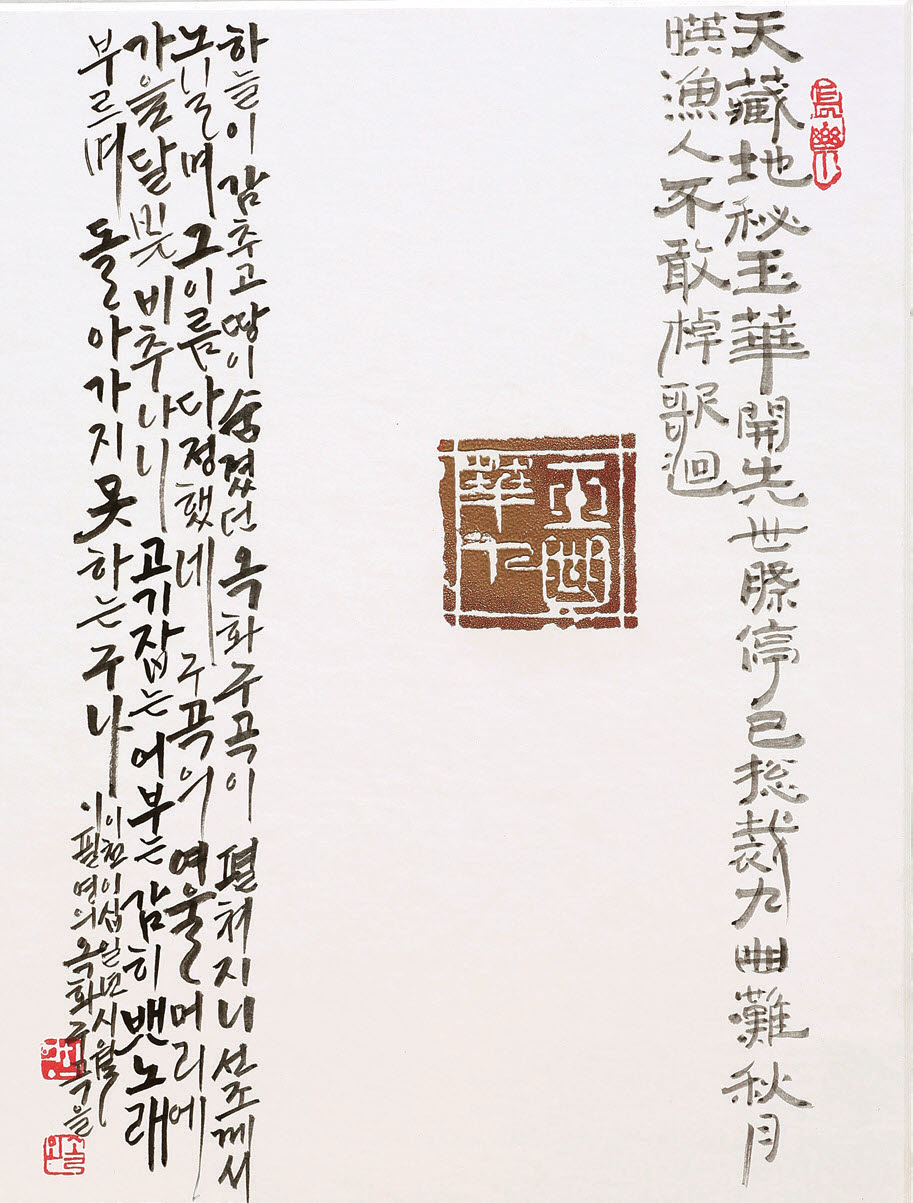 天藏地秘玉華開先世停已捴裁九曲灘秋月
暎漁人不敢棹歌迴
하늘이 감추고 땅이 숨겼던 옥화구곡이 펼쳐지니 선조께서
노닐며 그 이름 다정했네 구곡의 여울머리에
가을 달빛 비추나니 고기잡는 어부는 감히 뱃노래
부르며 돌아가지 못하는구나
이천이십일년 시월
이필영의 옥화구곡을